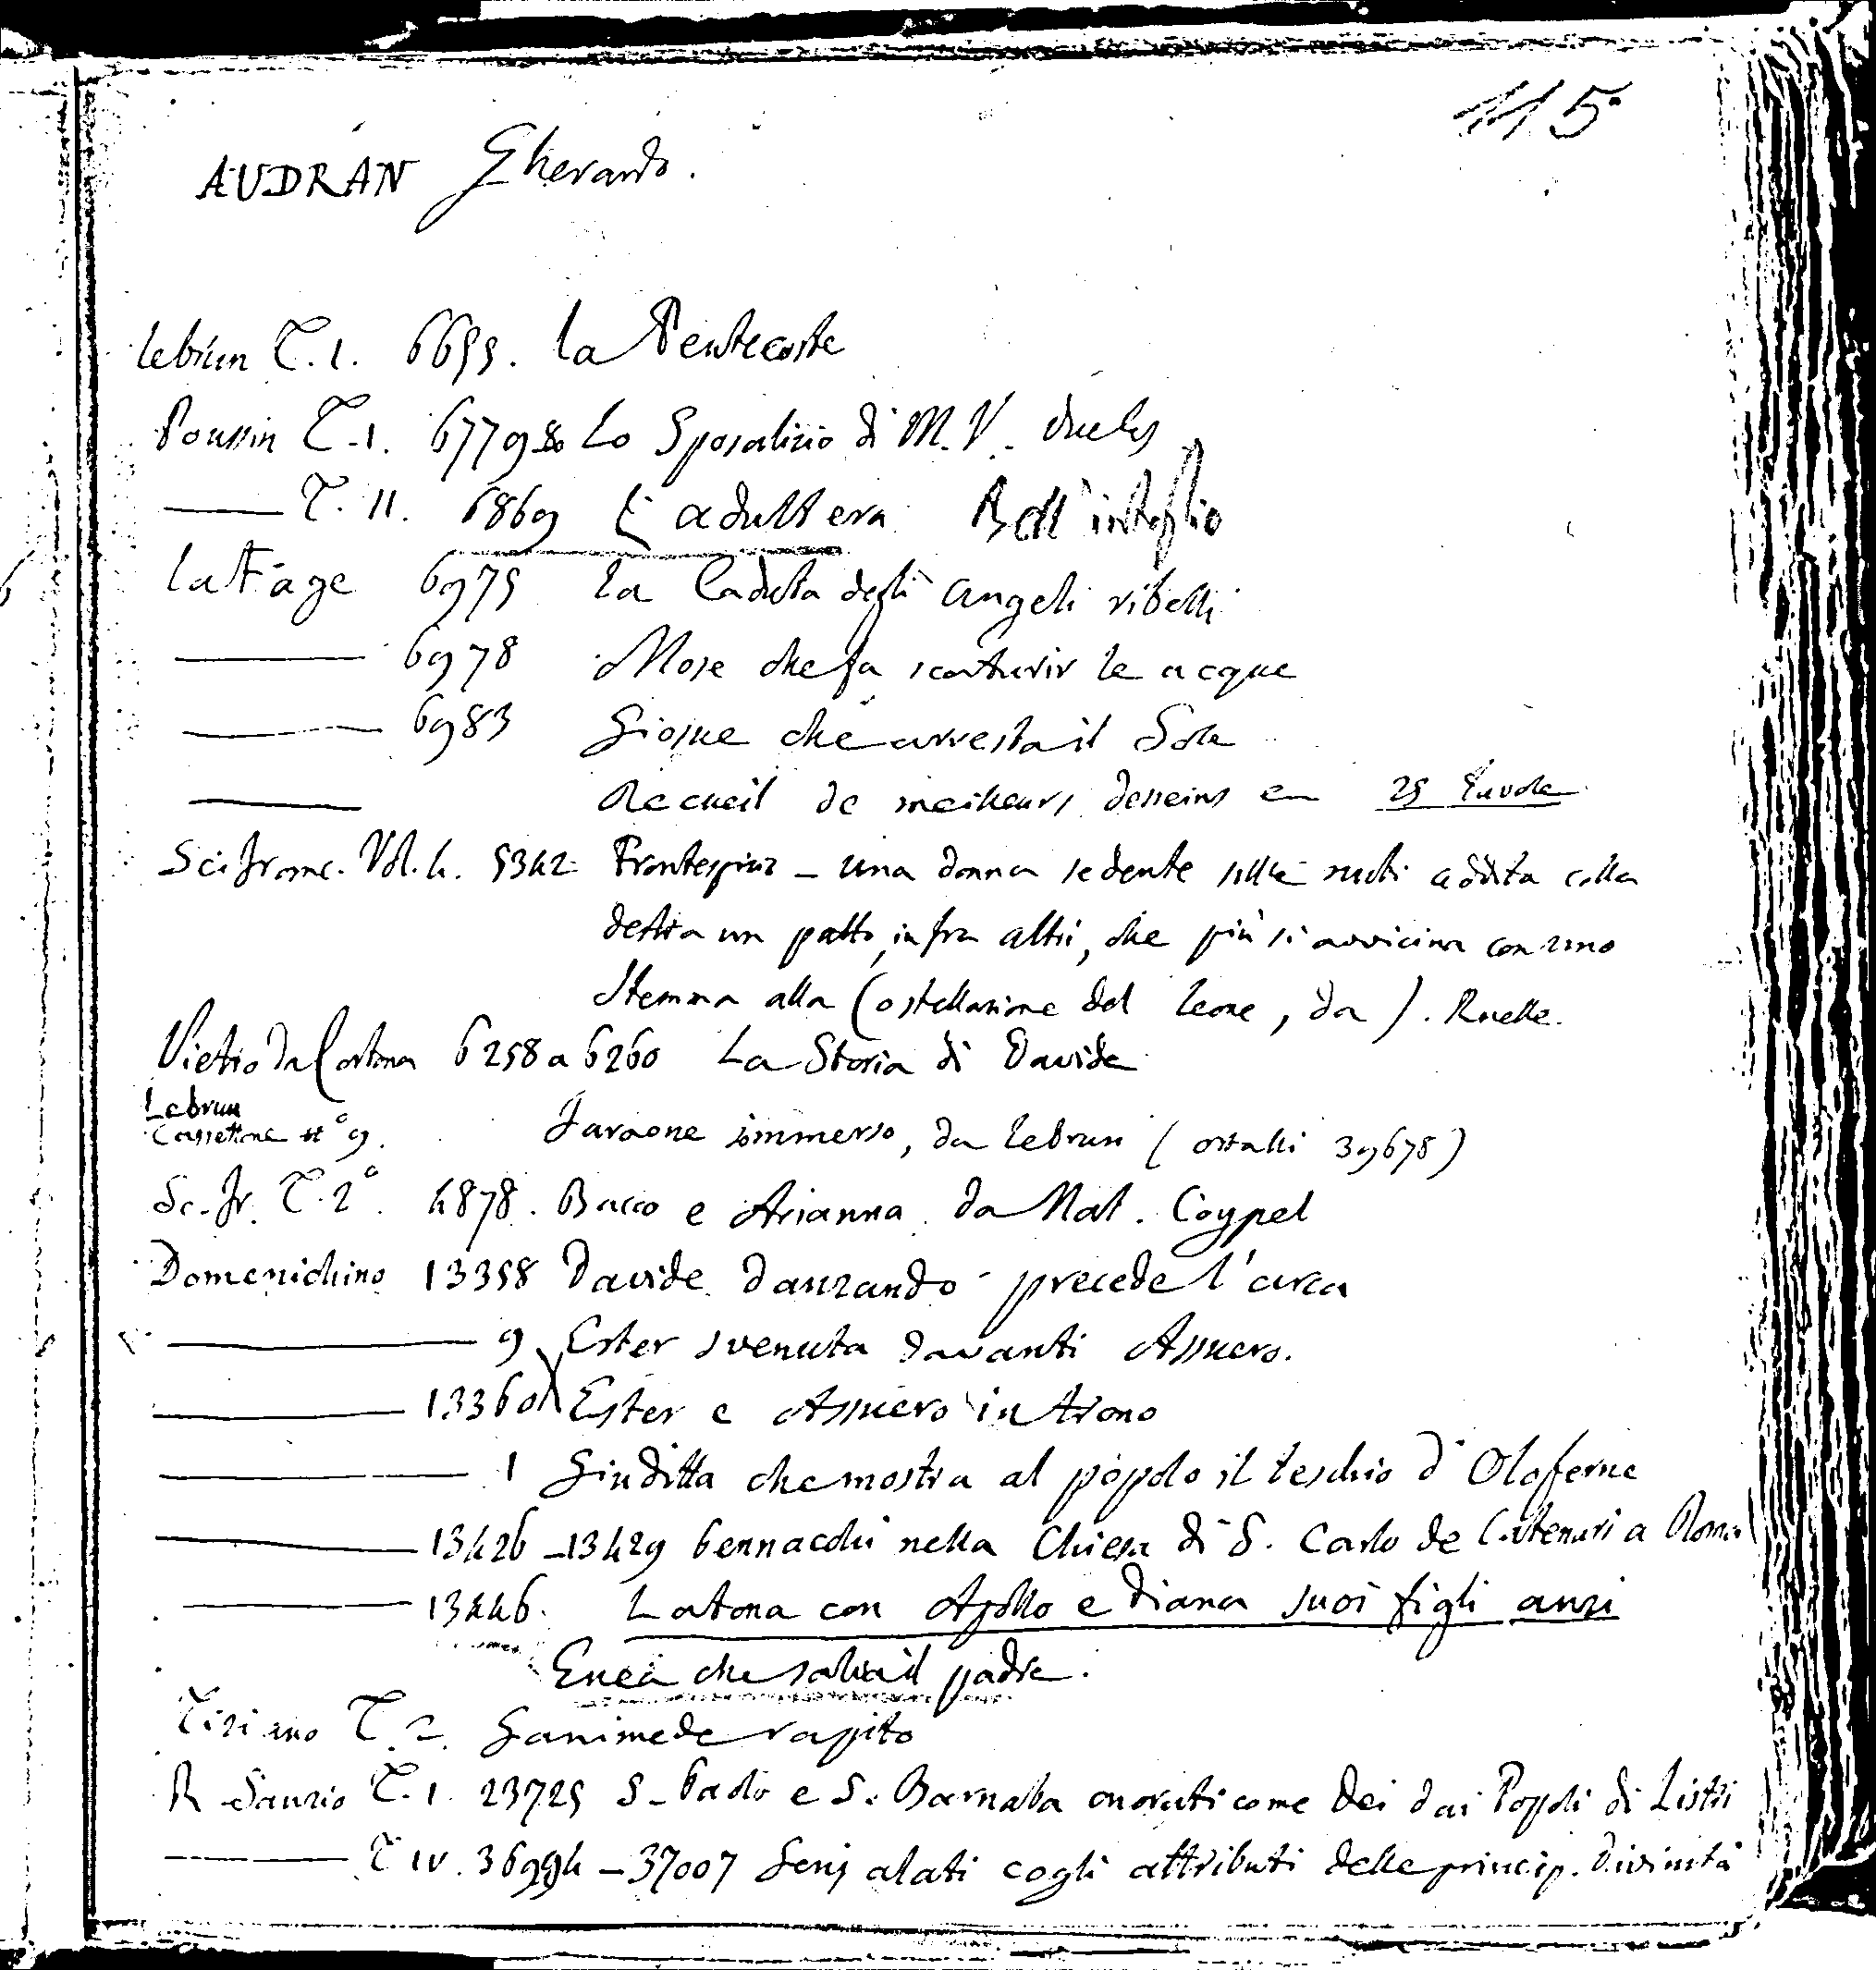 115
AUDRAN Gherardo.
Lebrun T. 1. 6655. La Pentecoste
Poussin T. 1. 6779.80 Lo Sposalizio di M. V.
T. II. 6869 L'adultera Bell'intaglio
La Fage 6975 La Caduta degli angeli ribelli
6978 Mose che fa scaturir le acque
6983 Giosue che arresta il Sole
Recueil de meilleurs desseins en 25 tavole
Sc. franc. Vol. 4. 5342 Frontespizio - una donna sedente sulle nubi addita colla
destra un putto, infra altri, che più si avvicina con uno
Stemma alla Costellazione del leone, da ). Ruelle.
Pietro da Cortona 6258 a 6260 La Storia di Davide
Lebrun
Cassettone n° 9. Faraone sommerso, da Lebrun ( ortalli 39678)
Sc. fr. T. 2°. 4878. Bacco e Arianna da Nat. Coypel
Domenichino 13358 Davide danzando precede l'arca
9 Ester svenuta davanti Assuero.
13360 Ester e Assuero in trono
1 Giuditta che mostra al popolo il teschio d'Oloferne
13426 - 13429 pennacchi nella Chiesa di S. Carlo de Catenari a Roma
13446. Latona con Apollo e Diana suoi figli anzi
Enea che salva il padre.
Tiziano T. 2. Ganimede rapito
R Sanzio T. 1. 23725 S. Paolo e S. Barnaba onorati come Dei dai Popoli di Listri
T IV. 36994 - 37007 Genj alati cogli attributi delle princip. Divinità